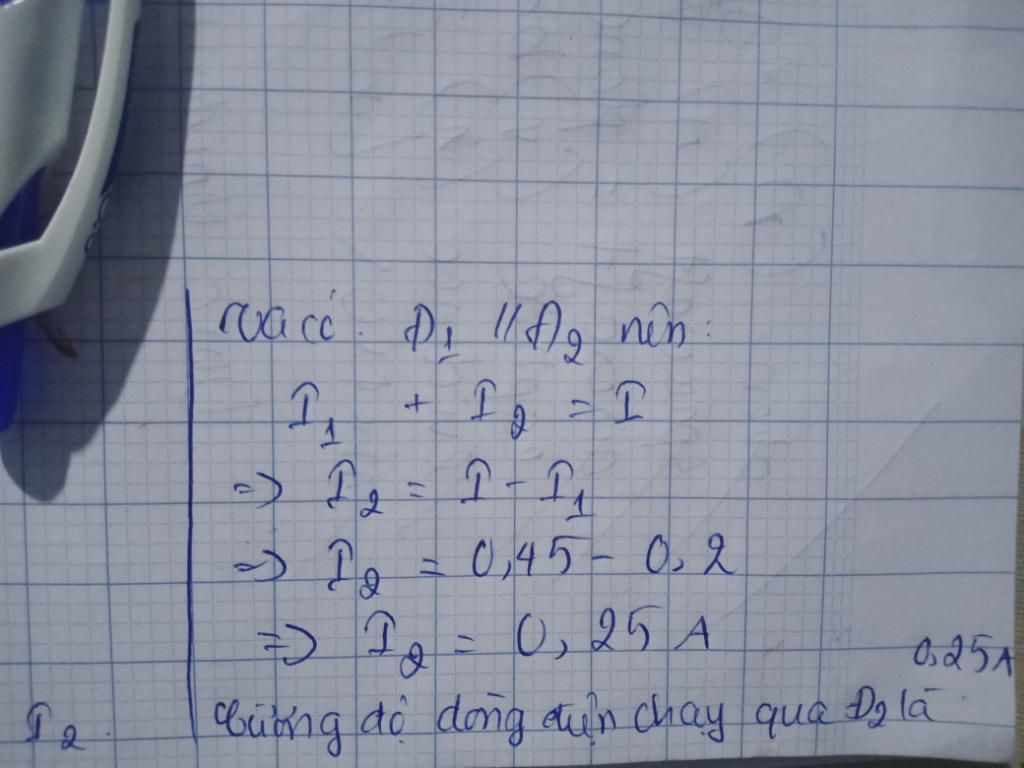 Ta có: Đ1 // Đ2 nên:
I1 + I2 = I
=> I2 = I - I1
=> I2 = 0,45 - 0,2
=> I2 = 0,25 A
0,25A
I2. Cường độ dòng điện chạy qua Đ2 là